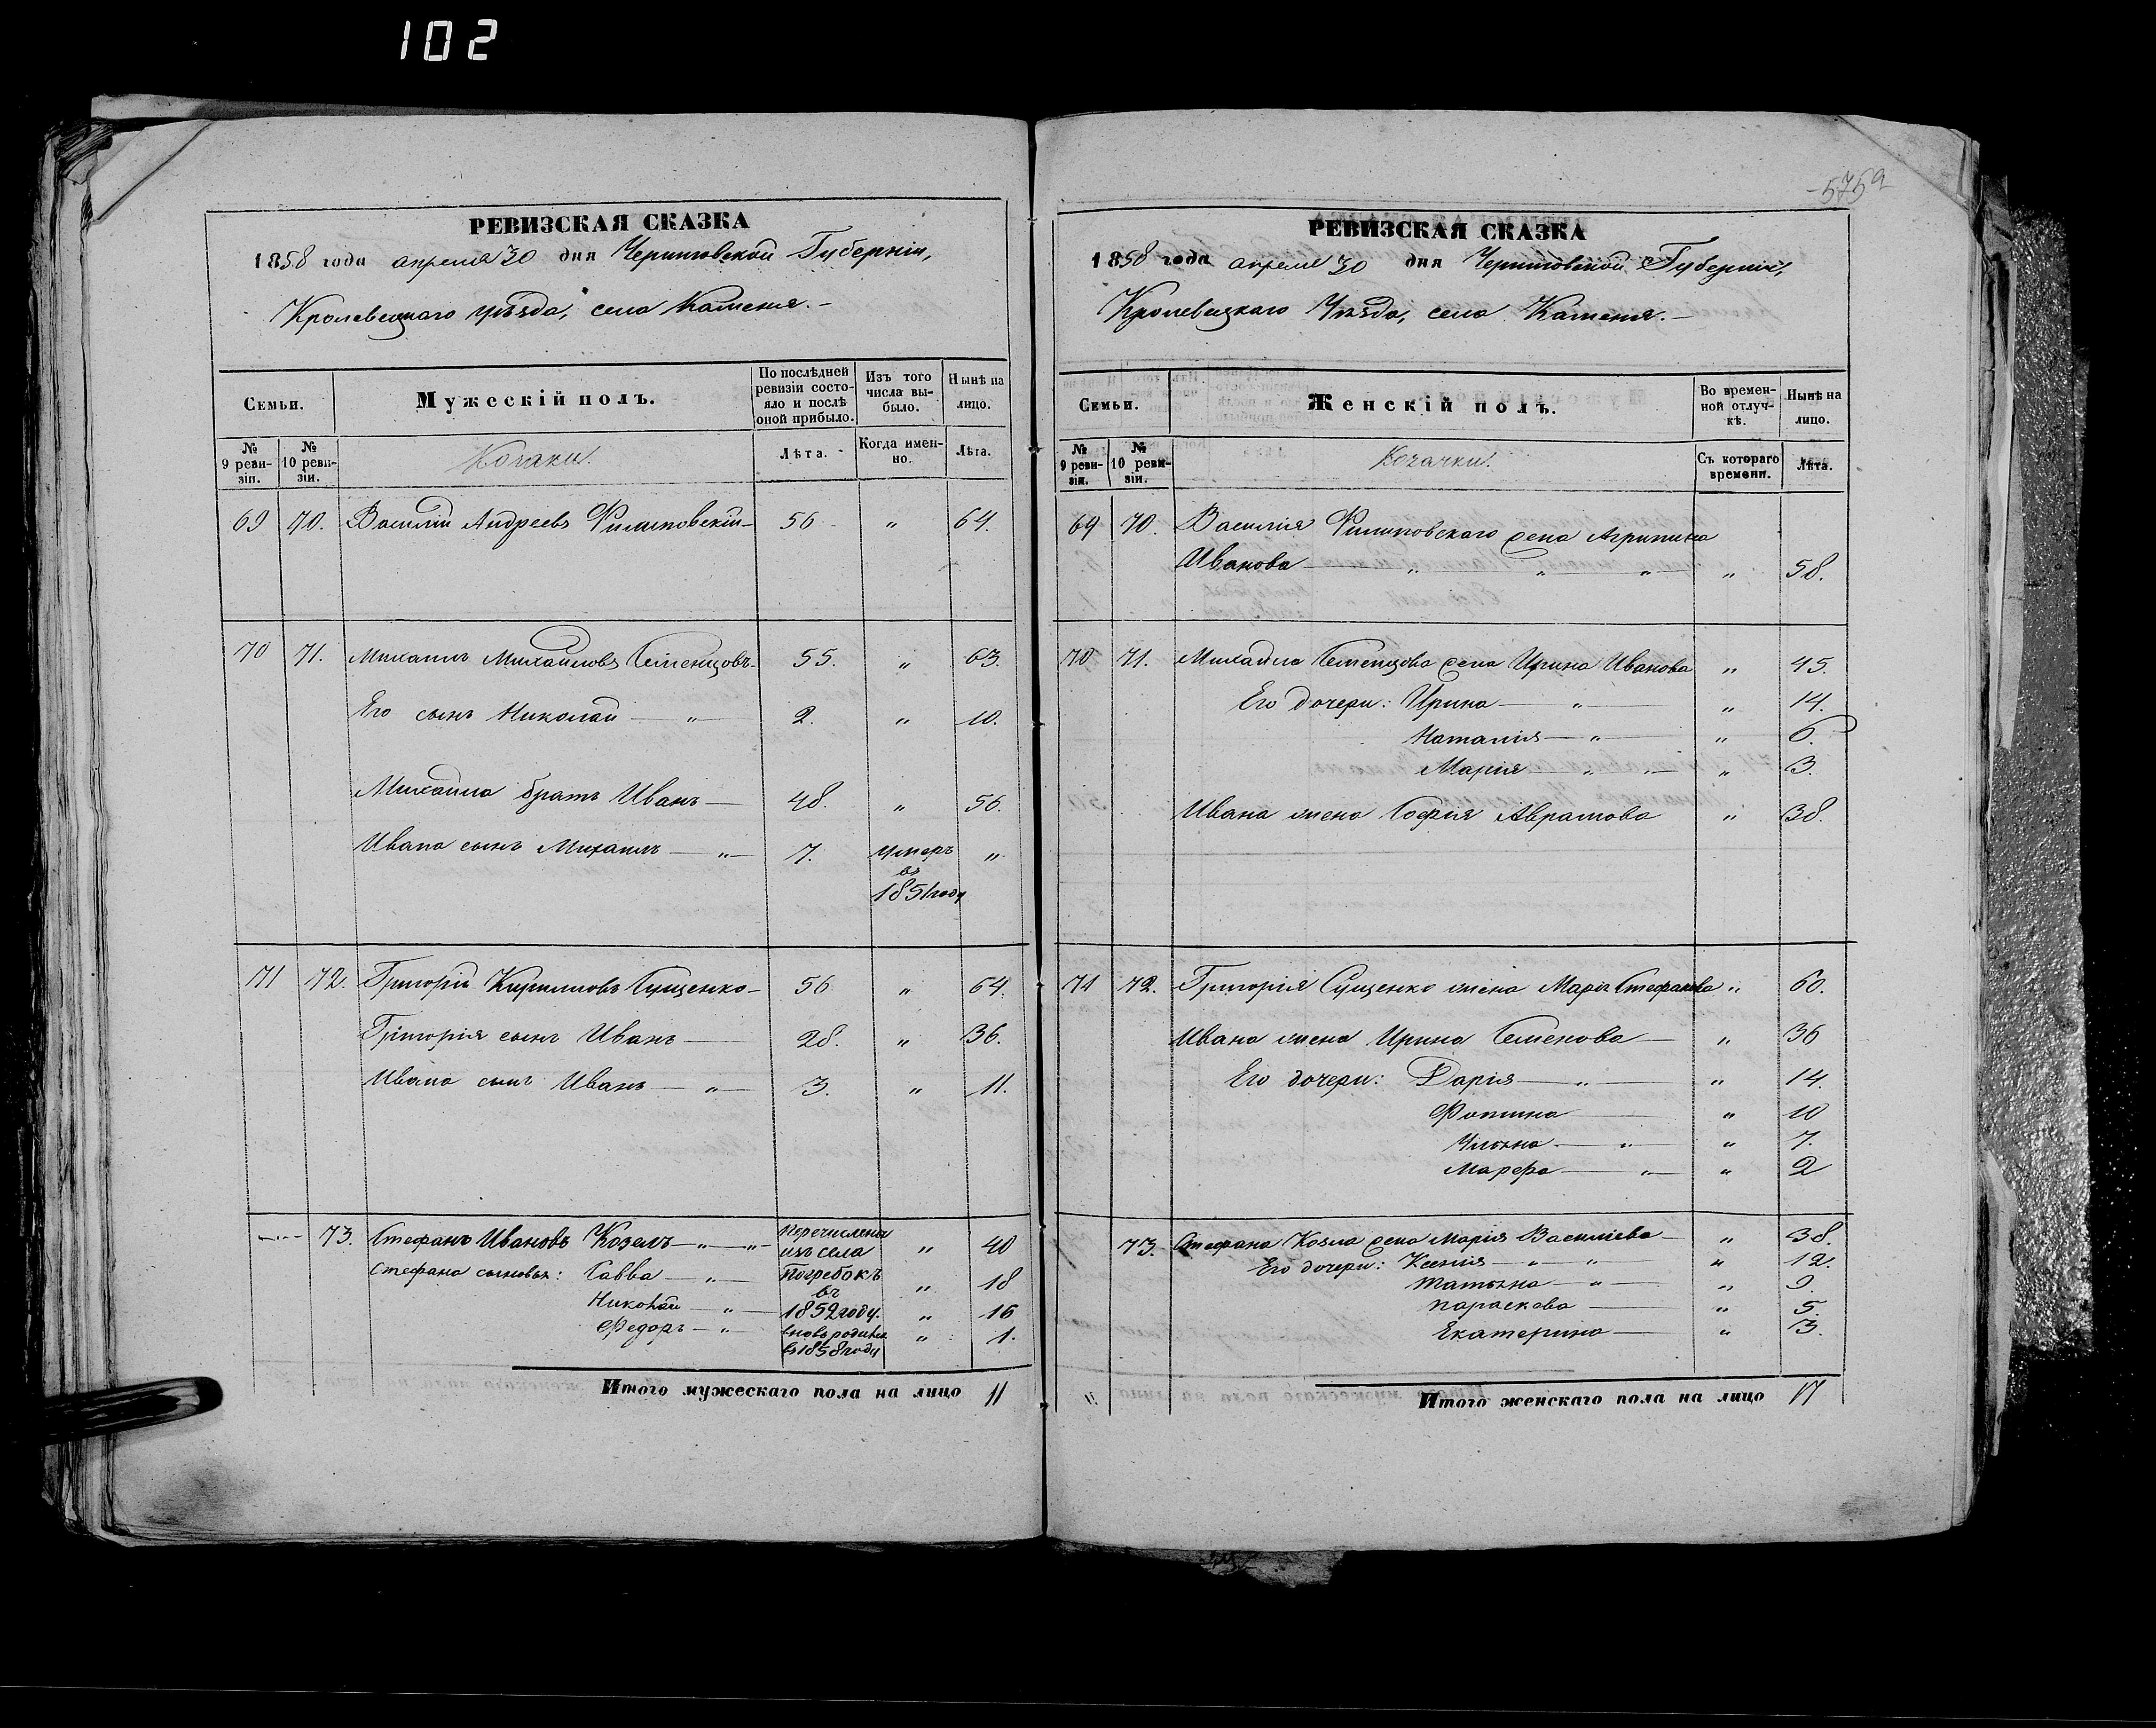 102
РЕВИЗСКАЯ СКАЗКА
1858 года апреля 30 дня Черниговской Губернiи,
Кролевецкаго уѣзда, села Каменя.-
Семьи.
Мужескiй полъ.
По послѣдней ревизiи состояло и послѣ оной прибыло.
Изъ того числа выбыло.
Нынѣ на лицо.
№ 9 ревизiи.
№ 10 ревизiи.
Козаки.
Лѣта.
Когда именно.
Лѣта.
69 70. Василiй Андреевъ Филиповскiй- 56 " 64.
70 71. Михаилъ Михайловъ Семенцовъ- 55. " 63.
Его сынъ Николай — " — 2. " 10.
Михаила братъ Иванъ — 48. " 56.
Ивана сынъ Михаилъ — " — 7. умеръ "
въ
1851 году
71 72. Григорiй Кириловъ Сущенко- 56 " 64.
Григорiя сынъ Иванъ — 28. " 36.
Ивана сынъ Иванъ — " — 3. " 11.
73. Стефанъ Ивановъ Козелъ — " — " — перечислены " 40
изъ села
Стефана сыновья: Савва — " — Погребокъ " 18
въ
Николай — " — 1852 году. " 16
Федоръ — " — вновь родился " 1.
въ 1858 году
Итого мужескаго пола на лицо 11
575а
РЕВИЗСКАЯ СКАЗКА
1858 года апреля 30 дня Черниговской Губернiи,
Кролевецкаго Уѣзда, села Каменя.—
Семьи.
Женскiй полъ.
Во временной отлучкѣ.
Нынѣ на лицо.
№ 9 ревизiи.
№ 10 ревизiи.
Козачки.
Съ котораго времени.
Лѣта.
69 70. Василiя Филиповскаго жена Агрипина
Иванова — " " " — " 58.
70 71. Михайла Семенцова жена Ирина Иванова " 45.
Его дочери: Ирина — " — " 14.
Наталiя — " — " 6.
Марiя — " " — " 3.
Ивана жена Софiя Абрамова " 38.
71 72. Григорiя Сущенко жена Марiя Стефанова " 60.
Ивана жена Ирина Семенова — " 36
Его дочери: Дарiя — " — " 14.
Фотина — " 10
Ульяна — " — " 7.
Марфа — " — " 2
73. Стефана Козла жена Марiя Василiева — " 38.
Его дочери: Ксенiя — " — " — " 12.
Татьяна — " — " 9.
Параскева — " 5.
Екатерина — " 3.
Итого женскаго пола на лицо 17